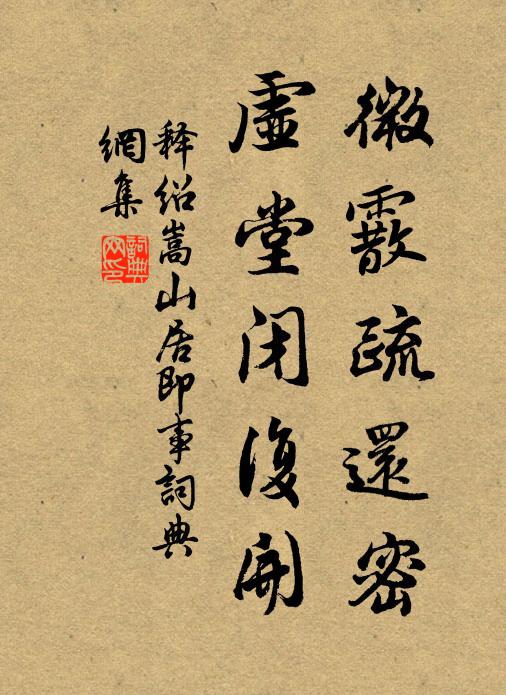 微霰疏還密
虛堂閉復開
釋紹嵩山居即事詞典
網集
詞典
网印